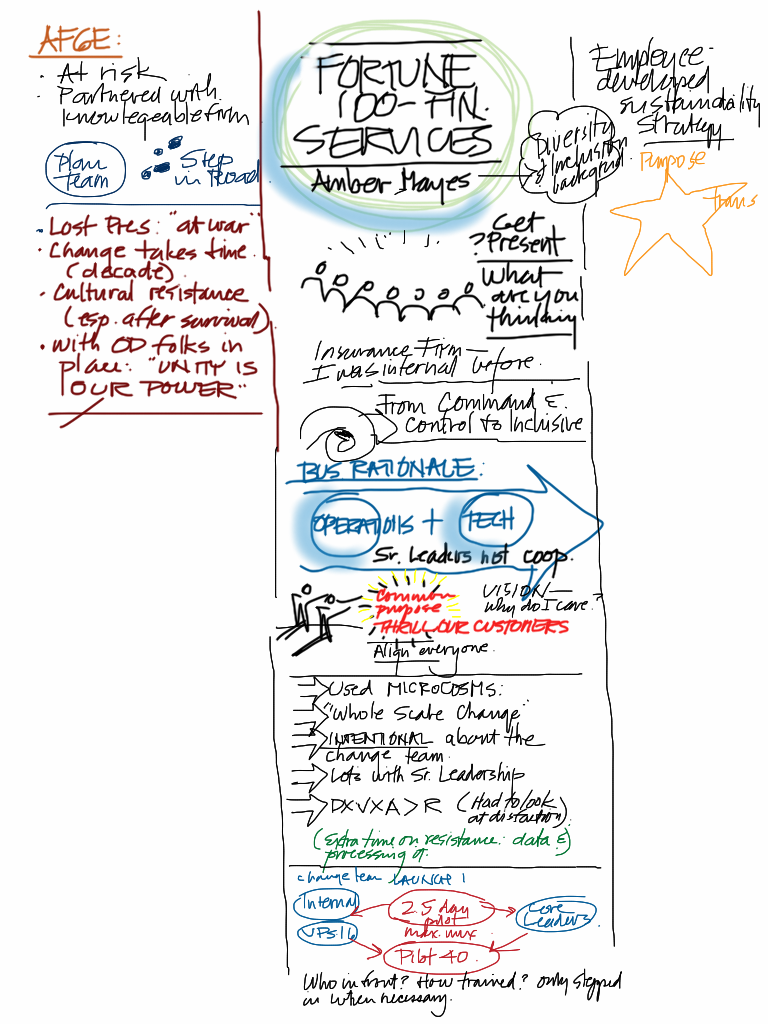 AFGE:
· At risk
· Partnered with
knowlegeable firm
Plan
Team
Step
in Road
· Lost Pres: "at war"
· Change takes time
(decade)
· Cultural resistance
(esp. after survival)
· With OD folks in
place: "UNITY IS
OUR POWER"
FORTUNE
100-FIN.
SERVICES
Amber Mayes
Diversity
& Inclusion
background
Get
Present
What
are you
thinking
Insurance Firm—
I was internal before.
From Command &
Control to Inclusive
BUS RATIONALE:
OPERATIONS + TECH
Sr. Leaders not coop.
Common
purpose
THRILL OUR CUSTOMERS
VISION—
why do I care.
Align everyone
Used MICROCOSMS:
"Whole Scale Change"
INTENTIONAL about the
change team.
Lots with Sr. Leadership
DXVXA>R (Had to look
at distraction)
(Extra time on resistance: data &
processing of.
change team LAUNCH!
Internal
VPS 16
2.5 day
pilot
max. mix
Core
Leaders
Pilot 40
Who in front? How trained? only stepped
in when necessary.
Employee-
developed
sustainability
Strategy
Purpose
Trans